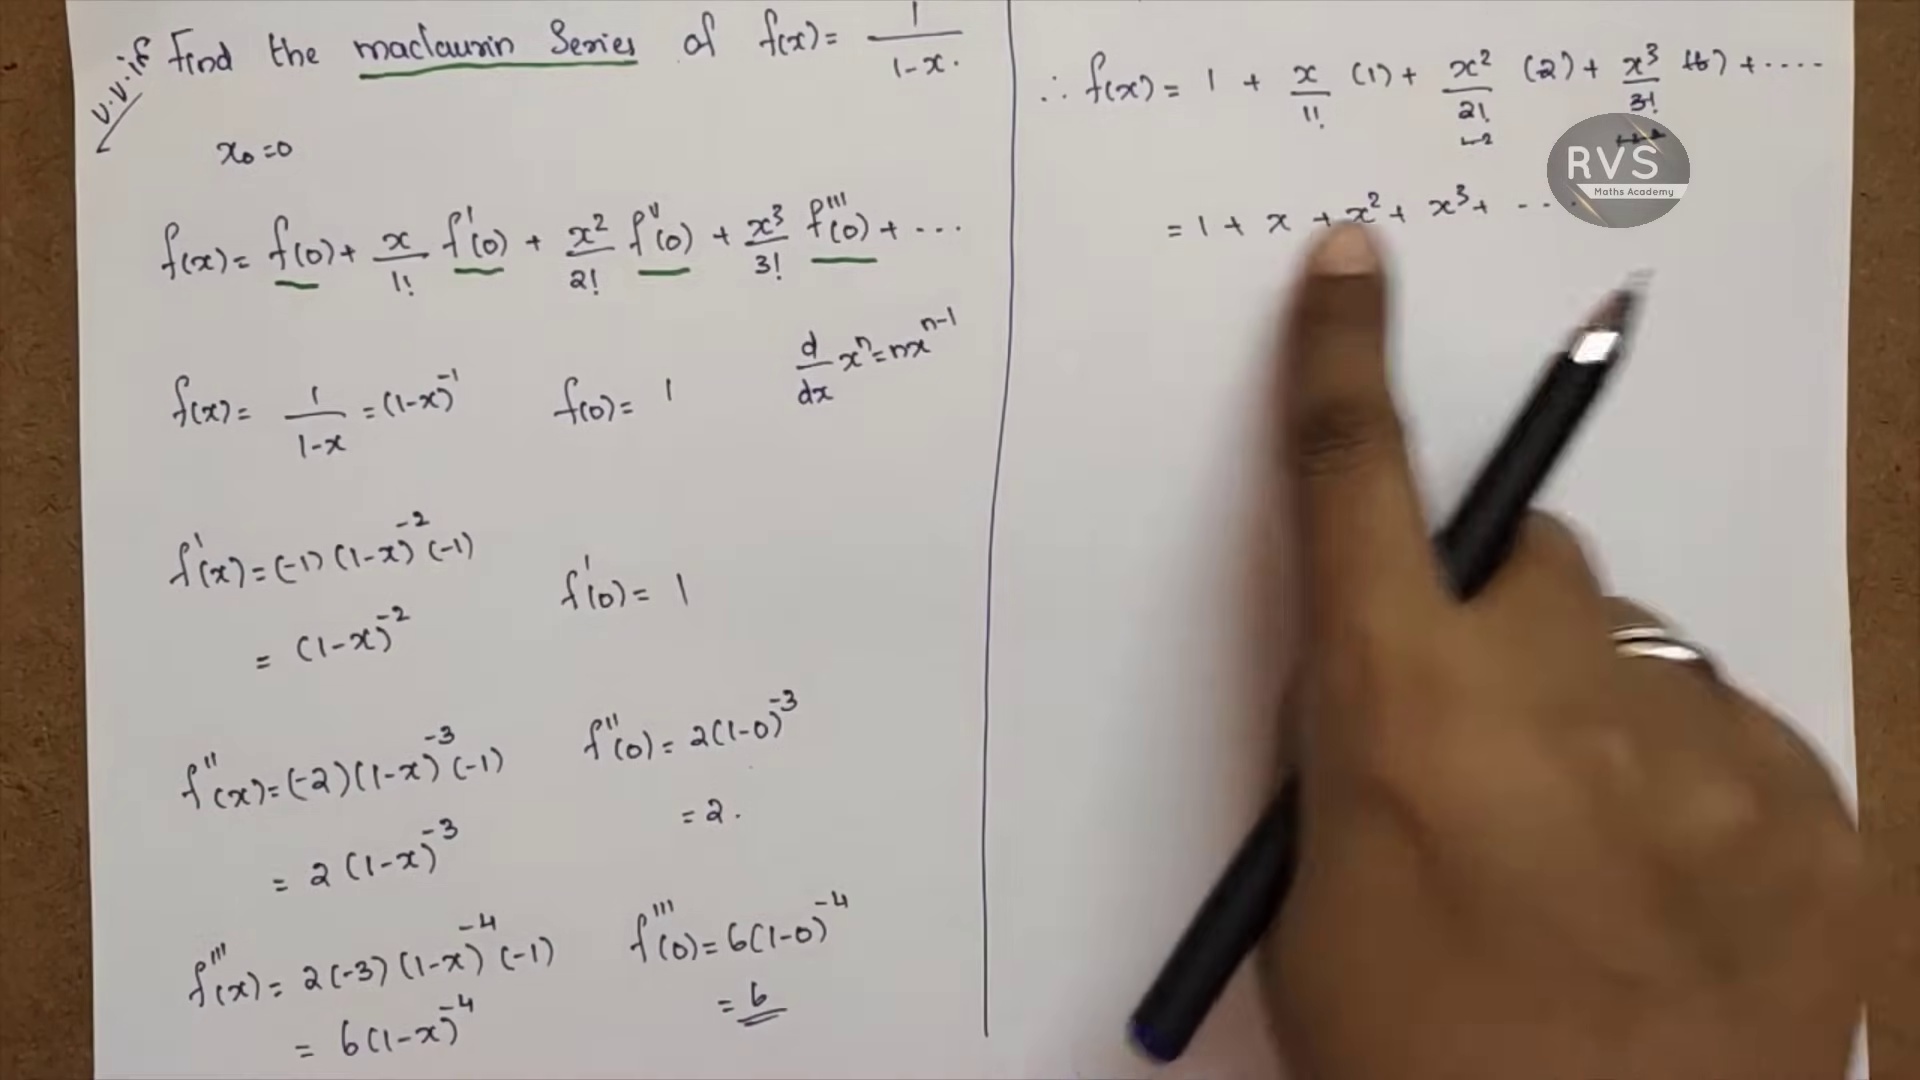 V.V.if Find the maclaurin Series of f(x) = 1/1-x.
x₀=0
f(x) = f(0) + x/1! f'(0) + x²/2! f''(0) + x³/3! f'''(0) + ...
f(x) = 1/1-x = (1-x)⁻¹ f(0) = 1 d/dx xⁿ = nxⁿ⁻¹
f'(x) = (-1)(1-x)⁻²(-1)
= (1-x)⁻² f'(0) = 1
f''(x) = (-2)(1-x)⁻³(-1) f''(0) = 2(1-0)⁻³
= 2(1-x)⁻³ = 2.
f'''(x) = 2(-3)(1-x)⁻⁴(-1) f'''(0) = 6(1-0)⁻⁴
= 6(1-x)⁻⁴ = 6
∴ f(x) = 1 + x/1! (1) + x²/2! (2) + x³/3! (6) + ....
= 1 + x + x² + x³ + ....
RVS
Maths Academy